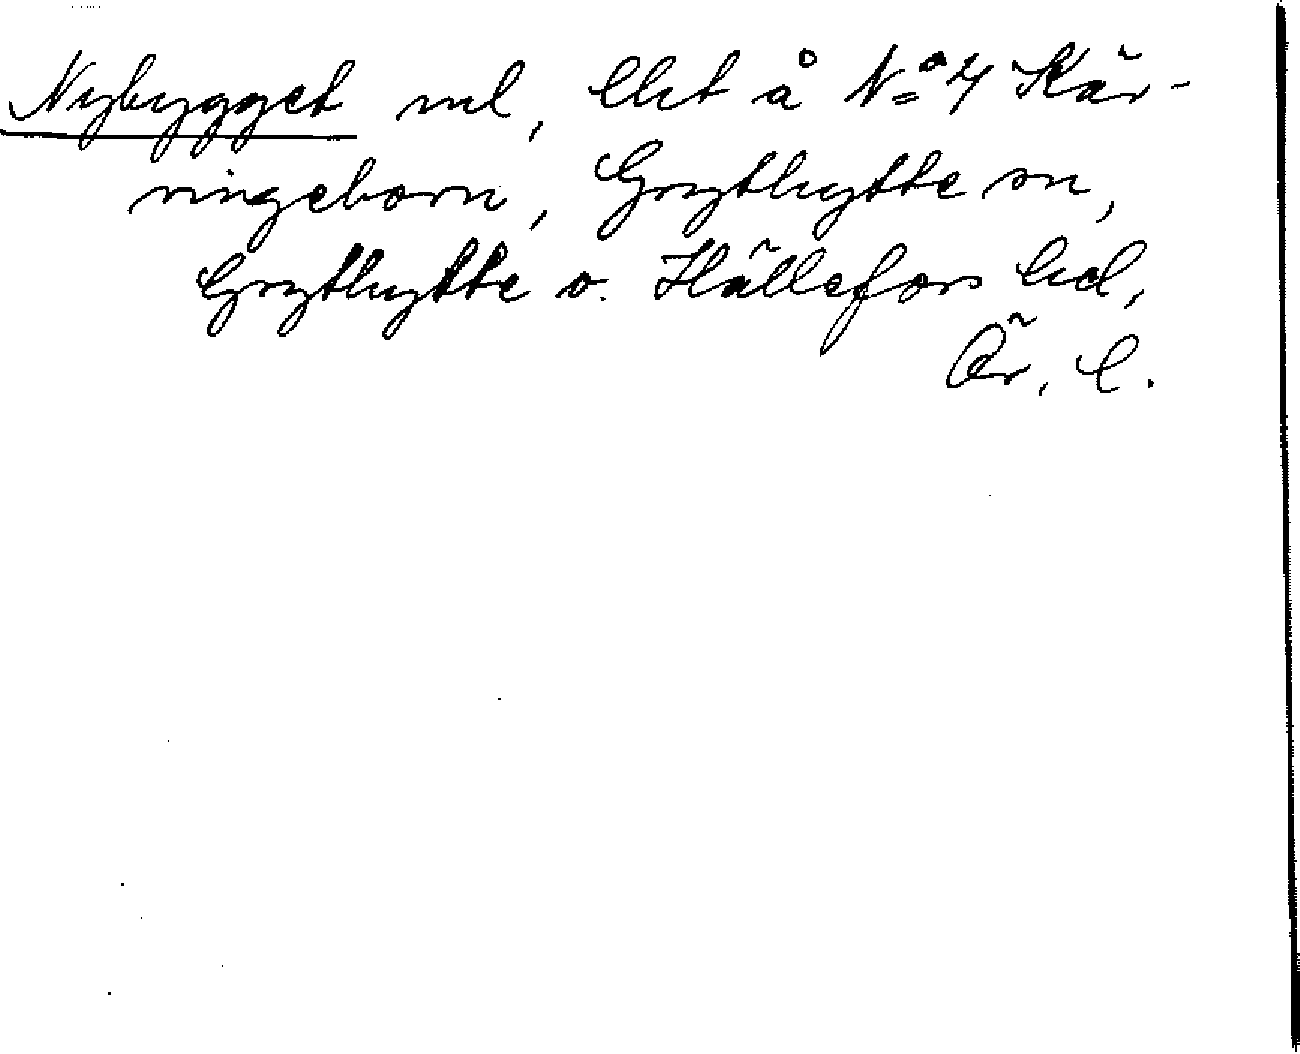 Nybygget ml, lht å No 4 Kär-
ringeborn, Grythytte sn,
Grythytte o. Hällefors hd,
Ör. l.